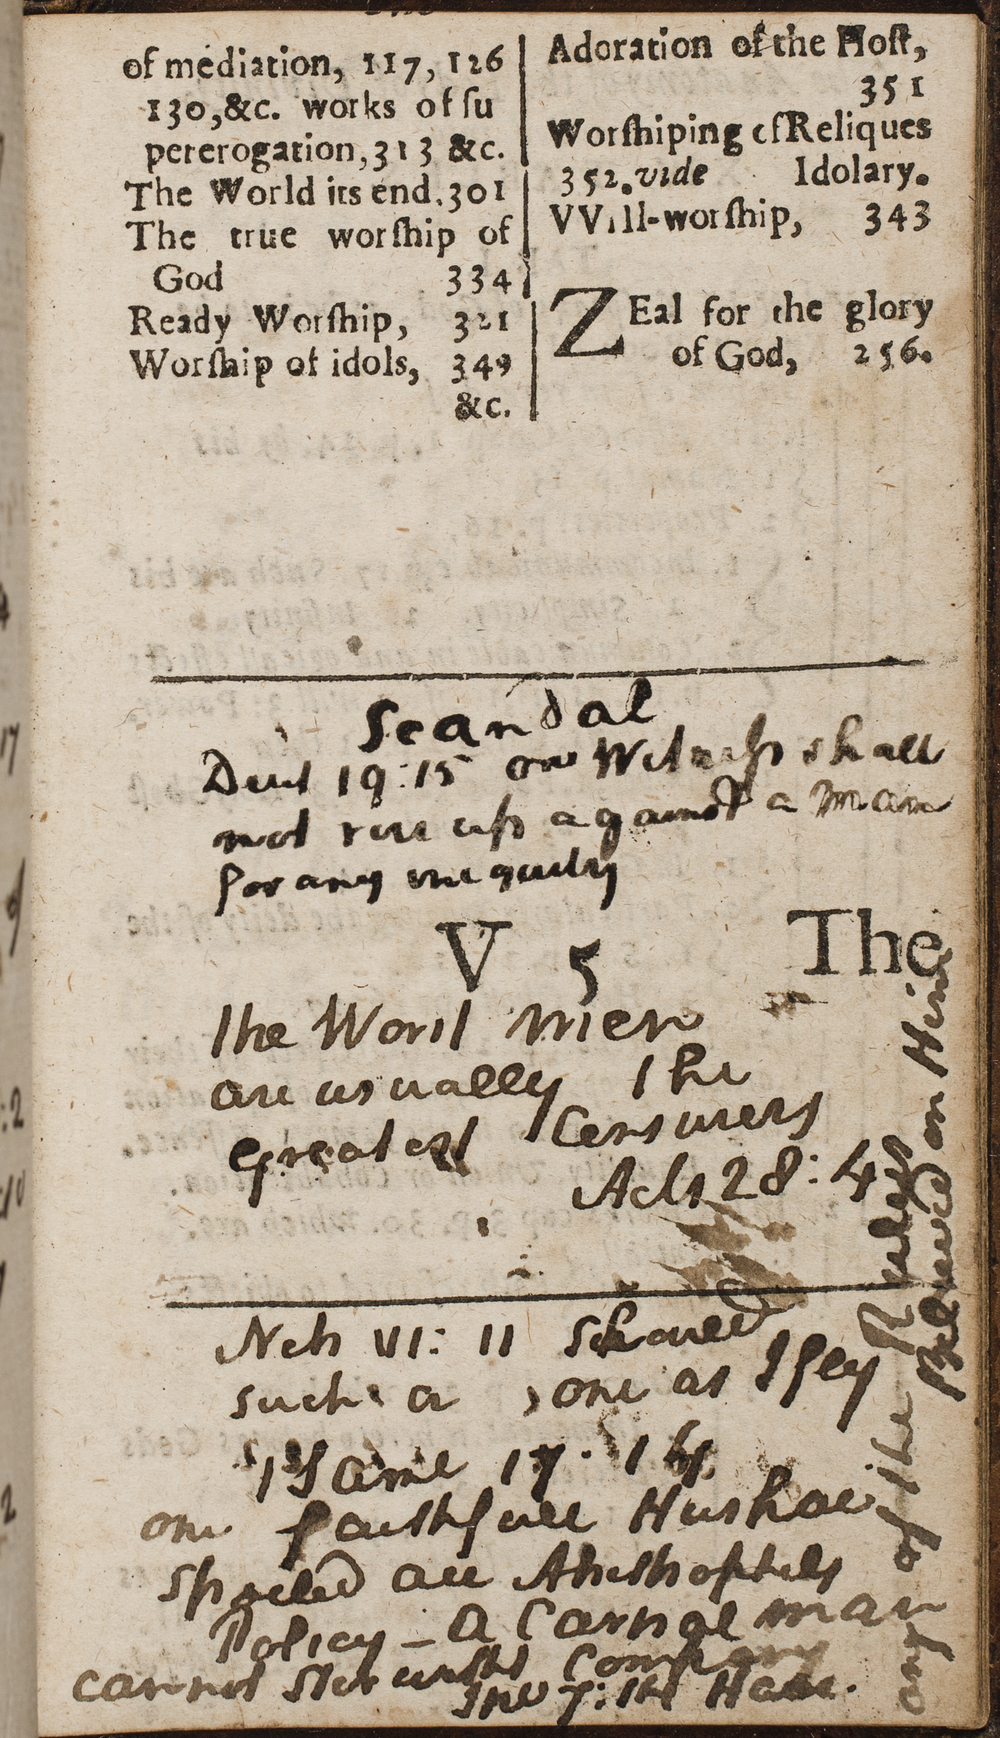 of mediation, 117, 126
130, &c. works of ſu
pererogation, 313 &c.
The World its end. 301
The true worſhip of
God 334
Ready Worſhip, 321
Worſhip of idols, 349
&c.
Adoration of the Hoſt,
351
Worſhiping of Reliques
352. vide Idolary.
VVill-worſhip, 343
ZEal for the glory
of God, 256.
Scandal
Deut 19:15 one Witneſs shall
not rise up against a man
for any iniquity
V 5 The
the Worst men
are usually the
greatest Censurers
Acts 28:4
Neh VI: 11 should
such a one as I fley
Same 17:14
one faithfull Hushai
spoiled all Ahithophels
Policy - a Carnal man
cannot
7: Have any of the Rulers
Believed on Him